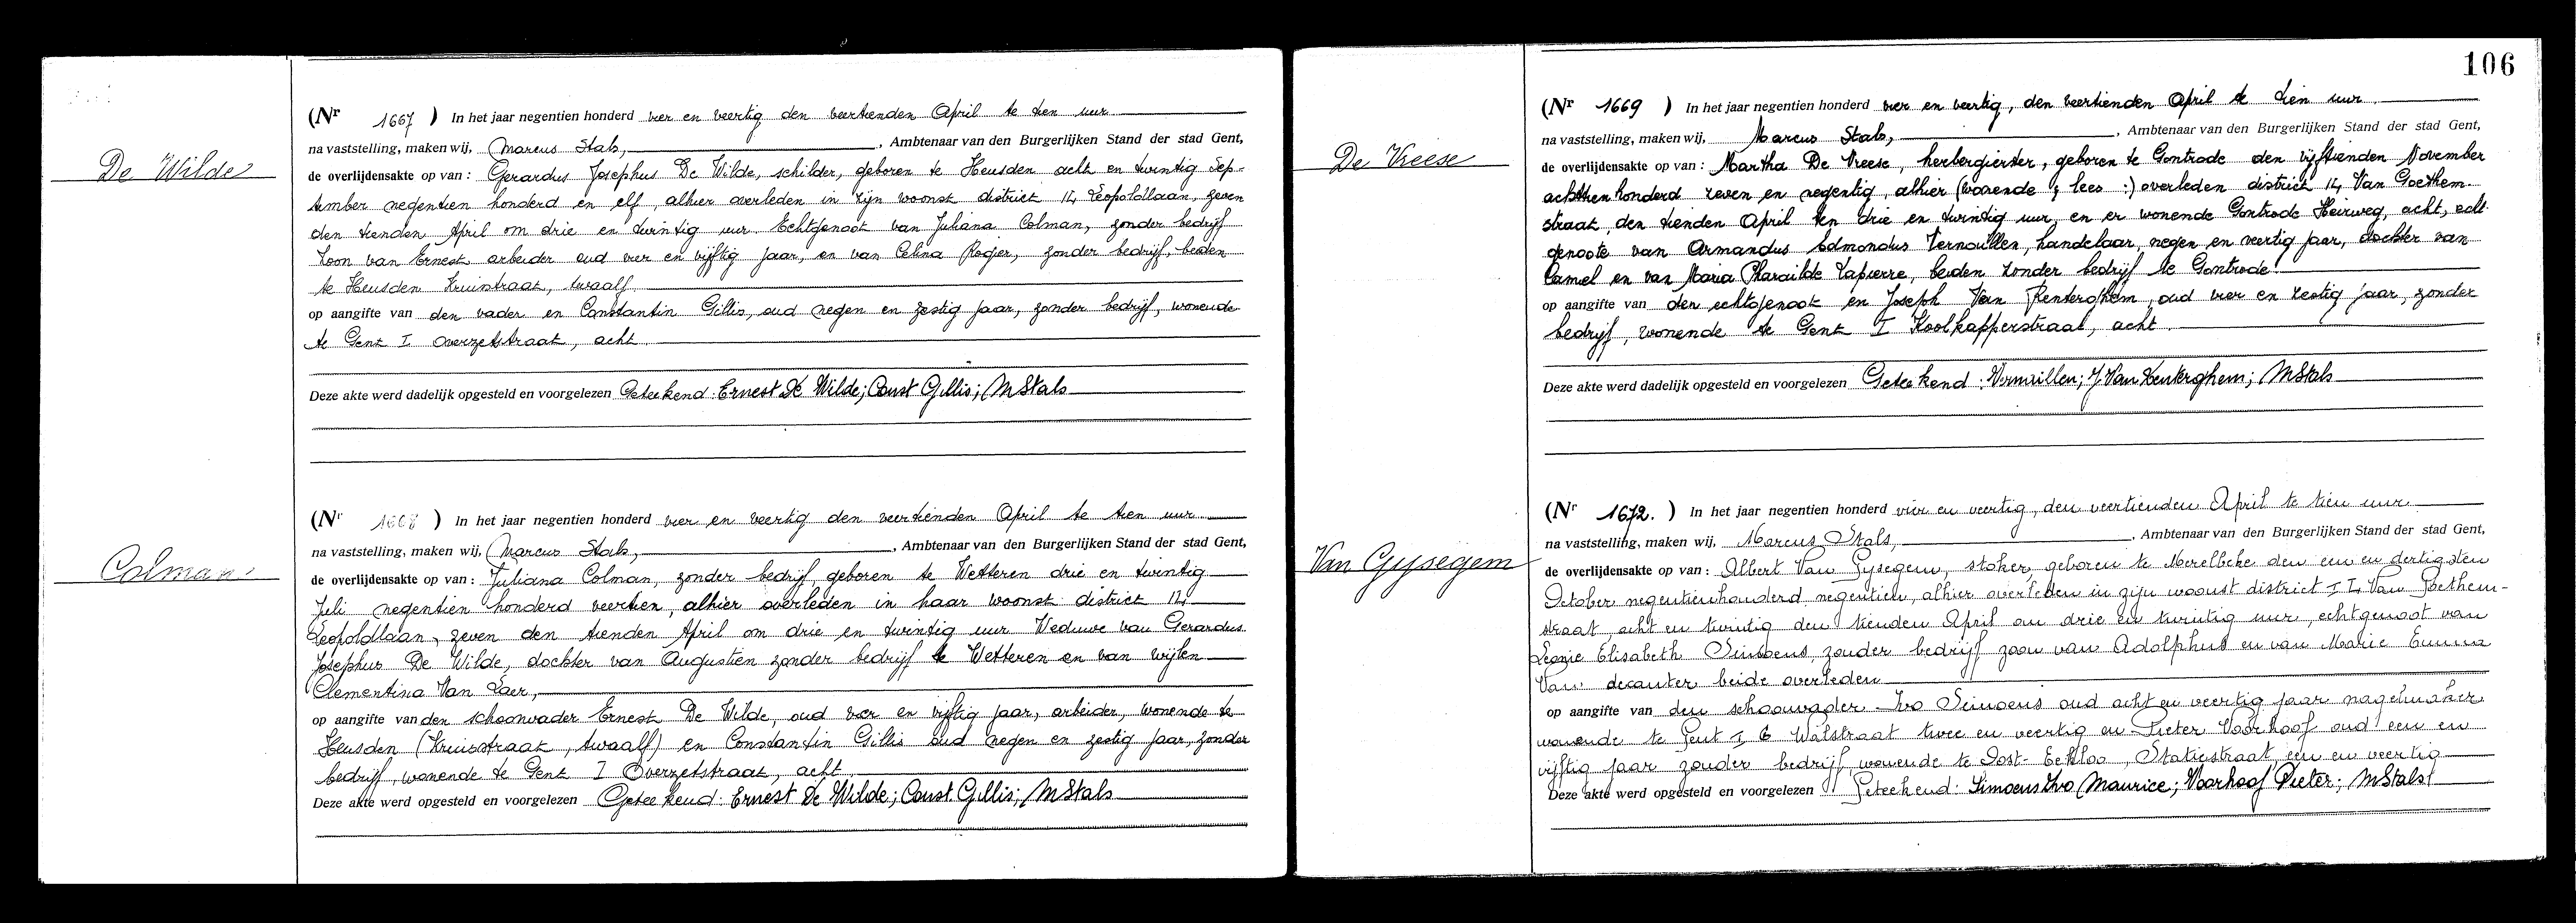 De Wilde
(Nr 1667 ) In het jaar negentien honderd vier en veertig den veertienden April te tien uur
na vaststelling, maken wij, Marcus Stals, , Ambtenaar van den Burgerlijken Stand der stad Gent,
de overlijdensakte op van : Gerardus Josephus De Wilde, schilder, geboren te Heusden acht en twintig Sep-
tember negentien honderd en elf, alhier overleden in zijn woonst district 14 Leopoldlaan, zeven
den tienden April om drie en twintig uur Echtgenoot van Juliana Colman, zonder bedrijf
Zoon van Ernest arbeider oud vier en vijftig jaar, en van Celina Rogier, zonder bedrijf, beiden
te Heusden Kruisstraat, twaalf.
op aangifte van den vader en Constantin Gillis, oud negen en zestig jaar, zonder bedrijf, wonende
te Gent I Overzetstraat, acht.
Deze akte werd dadelijk opgesteld en voorgelezen Geteekend: Ernest De Wilde; Const Gillis; M Stals
Colman
(Nr 1668 ) In het jaar negentien honderd vier en veertig den veertienden April te tien uur
na vaststelling, maken wij, Marcus Stals, , Ambtenaar van den Burgerlijken Stand der stad Gent,
de overlijdensakte op van : Juliana Colman, zonder bedrijf, geboren te Wetteren drie en twintig
Juli negentien honderd veertien, alhier overleden in haar woonst district 14
Leopoldlaan, zeven den tienden April om drie en twintig uur Weduwe van Gerardus
Josephus De Wilde, dochter van Augustien zonder bedrijf te Wetteren en van wijlen
Clementina Van Laer,
op aangifte van den schoonvader Ernest De Wilde, oud vier en vijftig jaar, arbeider, wonende te
Heusden (Kruisstraat, twaalf) en Constantin Gillis oud negen en zestig jaar, zonder
bedrijf, wonende te Gent I Overzetstraat, acht.
Deze akte werd opgesteld en voorgelezen Geteekend: Ernest De Wilde; Const. Gillis; M Stals
106
De Vreese
(Nr 1669 ) In het jaar negentien honderd vier en veertig, den veertienden April te tien uur
na vaststelling, maken wij, Marcus Stals, , Ambtenaar van den Burgerlijken Stand der stad Gent,
de overlijdensakte op van : Martha De Vreese, herbergierster, geboren te Gontrode den vijftienden November
achttien honderd zeven en negentig, alhier (wonende ; lees :) overleden district 14 Van Goethem-
straat, den tienden April ten drie en twintig uur, en er wonende Gontrode Heirweg, acht, echt-
genoote van Armandus Edmondus Vernaillen, handelaar, negen en veertig jaar, dochter van
Camel en van Maria Pharailde Lapierre, beiden zonder bedrijf te Gontrode.
op aangifte van den echtgenoot en Joseph Van Renterghem, oud vier en zestig jaar, zonder
bedrijf, wonende te Gent I Koolkapperstraat, acht.
Deze akte werd dadelijk opgesteld en voorgelezen Geteekend: Vernaillen; J Van Renterghem; M Stals
Van Gysegem
(Nr 1672. ) In het jaar negentien honderd vier en veertig, den veertienden April te tien uur
na vaststelling, maken wij, Marcus Stals, , Ambtenaar van den Burgerlijken Stand der stad Gent,
de overlijdensakte op van : Albert Van Gysegem, stoker, geboren te Merelbeke den een en dertigsten
October negentienhonderd negentien, alhier overleden in zijn woonst district 14 Van Goethem-
straat, acht en twintig den tienden April om drie en twintig uur, echtgenoot van
Leonie Elisabeth Simoens, zonder bedrijf zoon van Adolphus en van Marie Emma
Van decanter beide overleden
op aangifte van den schoonvader Ivo Simoens oud acht en veertig jaar nagelmaker
wonende te Gent I Walstraat twee en veertig en Pieter Voorhoof oud een en
vijftig jaar zonder bedrijf, wonende te Oost-Eekloo, Statiestraat een en veertig
Deze akte werd opgesteld en voorgelezen Geteekend: Simoens Ivo Maurice; Voorhoof Pieter; M Stals